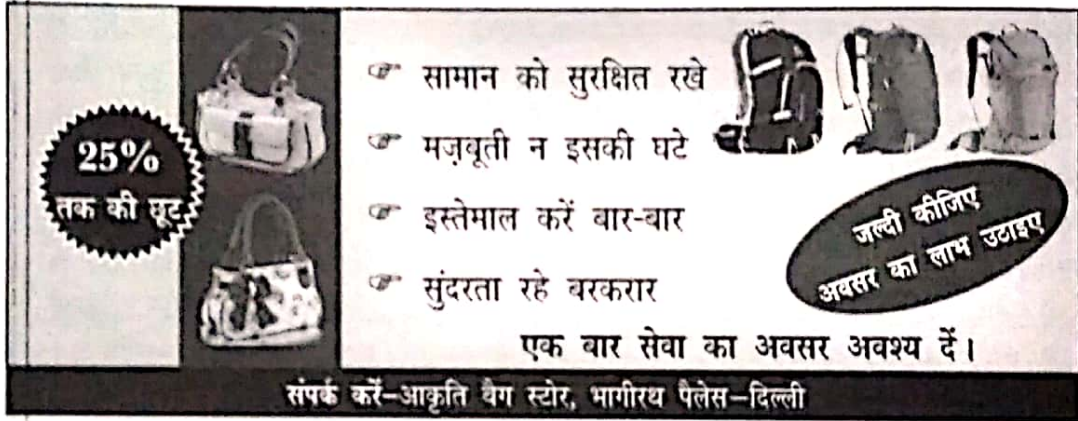 25%
तक की छूट
सामान को सुरक्षित रखे
मज़बूती न इसकी घटे
इस्तेमाल करें बार-बार
सुंदरता रहे बरकरार
जल्दी कीजिए
अवसर का लाभ उठाइए
एक बार सेवा का अवसर अवश्य दें।
संपर्क करें–आकृति बैग स्टोर, भागीरथ पैलेस–दिल्ली